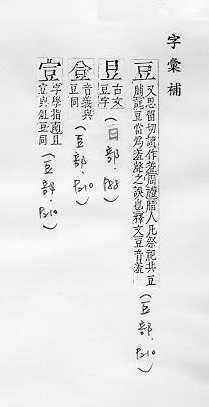 字彙補
豆
又思留切讀作羞周禮腊人凡祭祀共豆
脯註豆當為羞聲之誤也釋文豆音羞
(豆部.P210)
古文
豆字
(日部.P88)
音義與
豆同
(豆部.P210)
字學指南
與俎豆同
(豆部.P210)